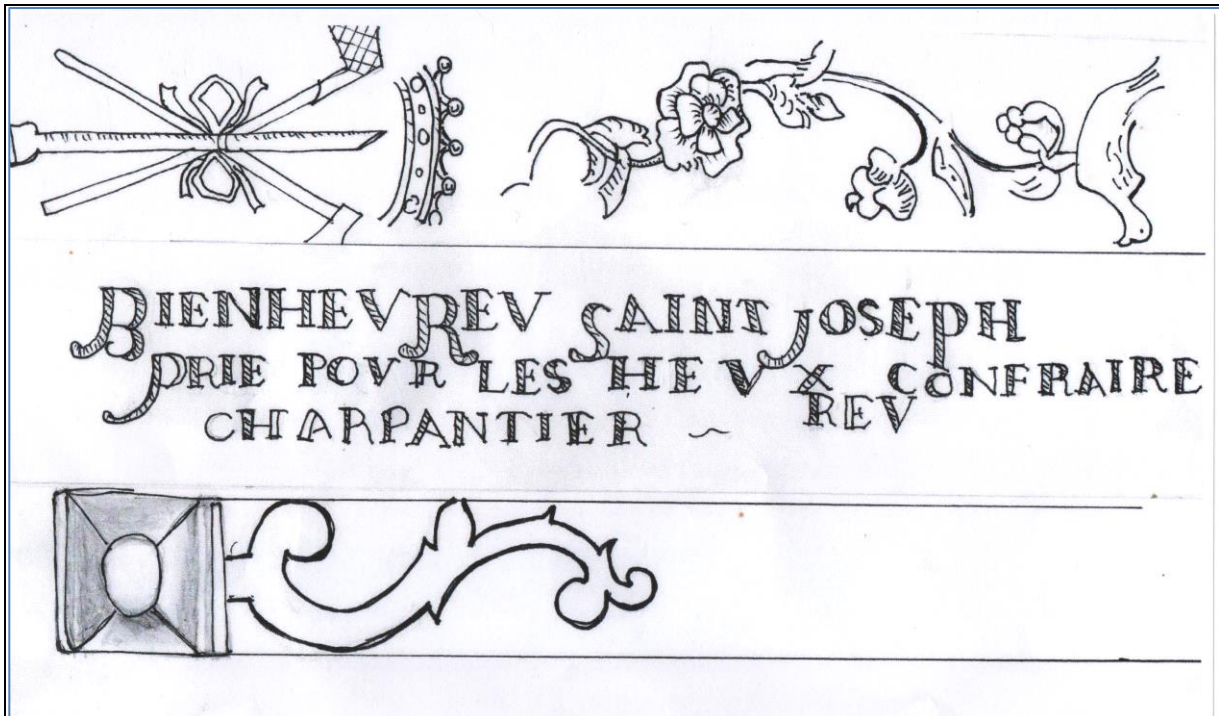 BIENHEVREV SAINT JOSEPH
PRIE POVR LES HEVX CONFRAIRE
REV
CHARPANTIER ~